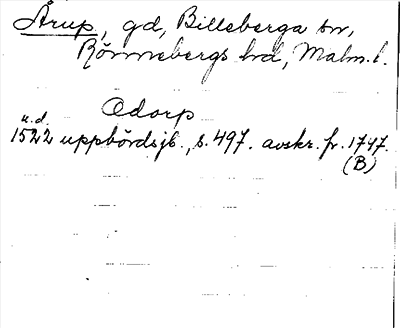 Årup, gd, Billeberga sn,
Rönnebergs hd, Malm. l.
Odorp
u.d.
1522 uppbördsjb., s. 497. avskr. fr. 1747.
(B)